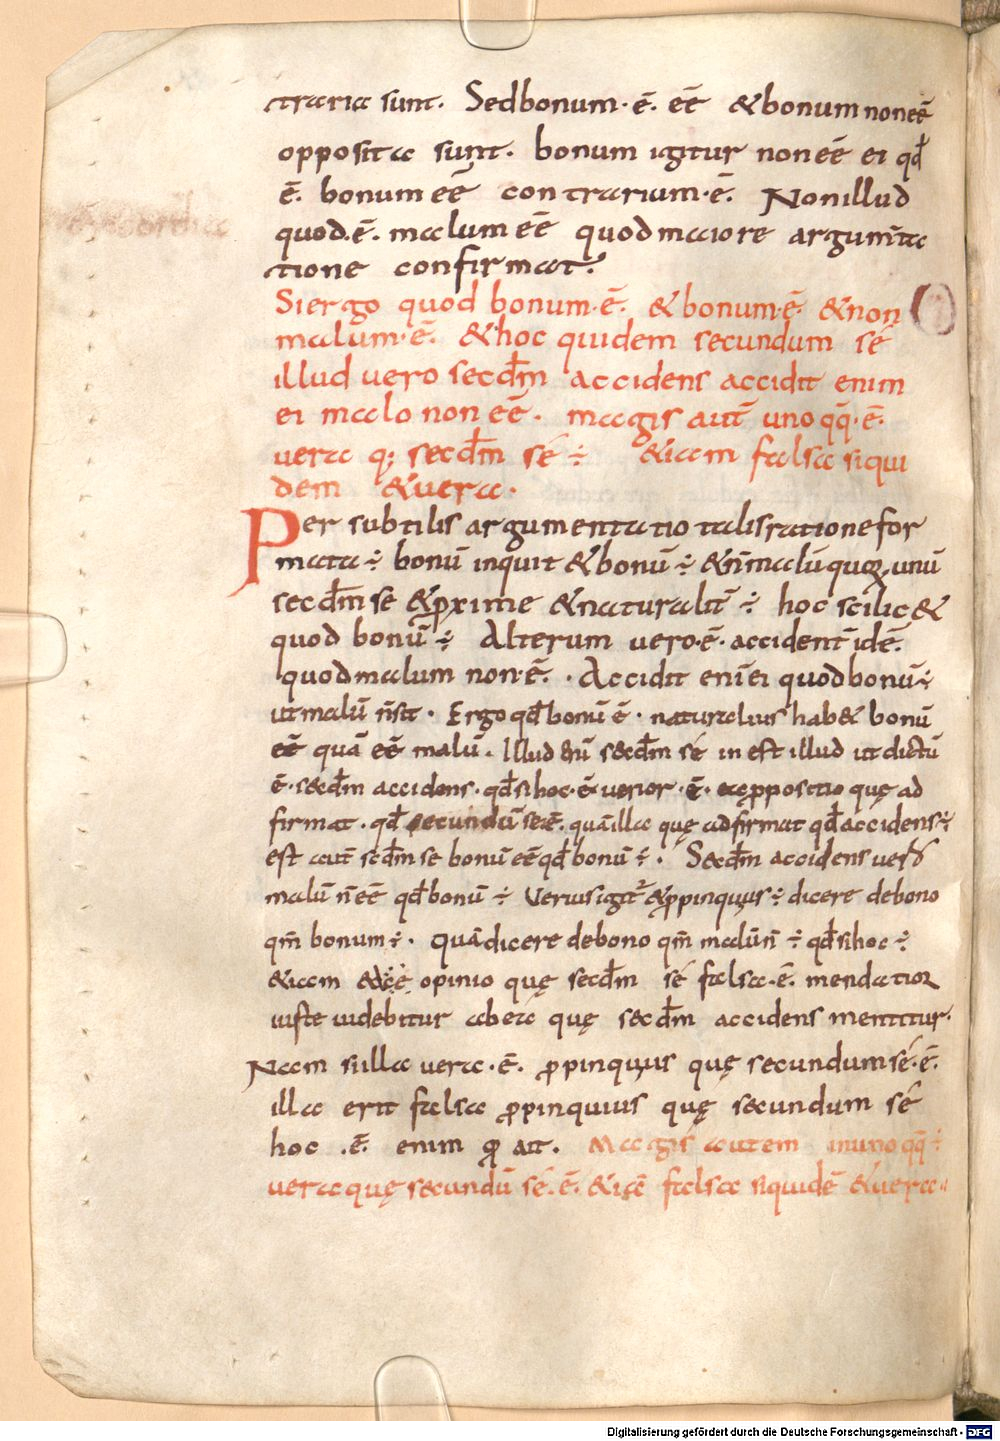 traria sunt. Sed bonum·ē. eē & bonum non eē
opposita sunt. bonum igitur non eē ei qđ
ē. bonum eē contrarium·ē. Non illud
quod·ē. malum eē quod maiore argum̄ta
tione confirmat.
Si ergo quod bonum·ē. & bonum·ē. & non
malum·ē. & hoc quidem secundum sé
illud vero secđm accidens accidit enim
ei malo non eē. magis aut̄ uno qq̄·ē.
vera q; secđm sé ÷ &iam falsa siqui
dem & vera.
Per subtilis argumentatio tali ratione for
mata ÷ bonū inquit & bonū ÷ & n̄ malū quoꝝ unū
secđm se & ꝓxime & naturalit̄ ÷ hoc scilic&
quod bonū ÷ Alterum vero·ē. accident̄ idē.
quod malum non·ē. . Accidit enī ei quod bonū ÷
ut malū n̄ sit . Ergo qđ bonū ē . naturalius hab& bonū
eē quā eē malū . Illud secđm sé in est illud ut dictū
ē·secđm accidens·qđ si hoc·ē verior·ē· ꝓpositio quę ad
firmat . qđ secundū se·ē. quā illa quę adfirmat qđ accidens ÷
est aut̄ scđm se bonū eē qđ bonū ÷ . Secđm accidens vero
malū n̄ eē qđ bonū ÷ Verius igit᷑ & ꝓpinquius ÷ dicere de bono
qm̄ bonum ÷ . quā dicere de bono qm̄ malū n̄ ÷ qđ si hoc ÷
&iam opinio quę secđm sé falsa·ē. mendatioꝝ
iuste videbitur ab ea quę secđm accidens mentitur.
Nam si illa vera·ē. ꝓpinquius quę secundum sé·ē.
illa erit falsa ꝓpinquius quę secundum sé
hoc .ē. enim ꝙ ait. Magis autem in uno qq̄ ÷
vera quę secundū sé·ē. &iā falsa siquidē & vera..
Digitalisierung gefördert durch die Deutsche Forschungsgemeinschaft - DFG